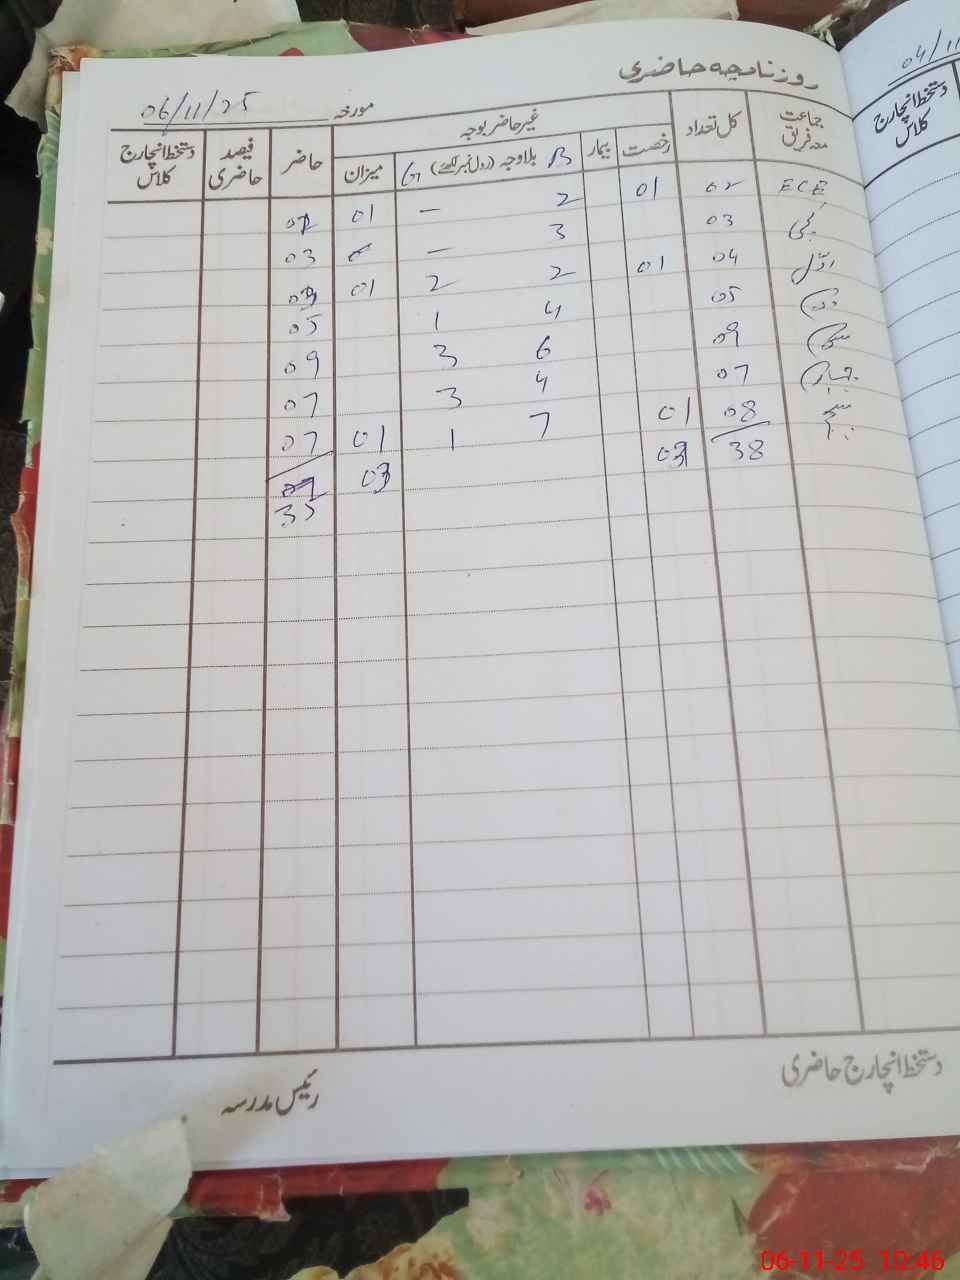 روزنامچہ حاضری
04/11
مورخہ 06/11/25
جماعت معہ فریق کل تعداد غیر حاضر بوجہ حاضر فیصد حاضری دستخط انچارج کلاس
رخصت بیمار B بلاوجہ (رول نمبر لکھئے) G میزان
دستخط انچارج کلاس
ECE 02 01 2 – 01
کچی 03 3 – 03
اوّل 04 01 2 2 01
دوم 05 4 1 05
سوم 09 6 3 09
چہارم 07 4 3 07
پنجم 08 01 7 1 01 07
38 03 03
35
دستخط انچارج حاضری
رئیس مدرسہ
06-11-25 10:46